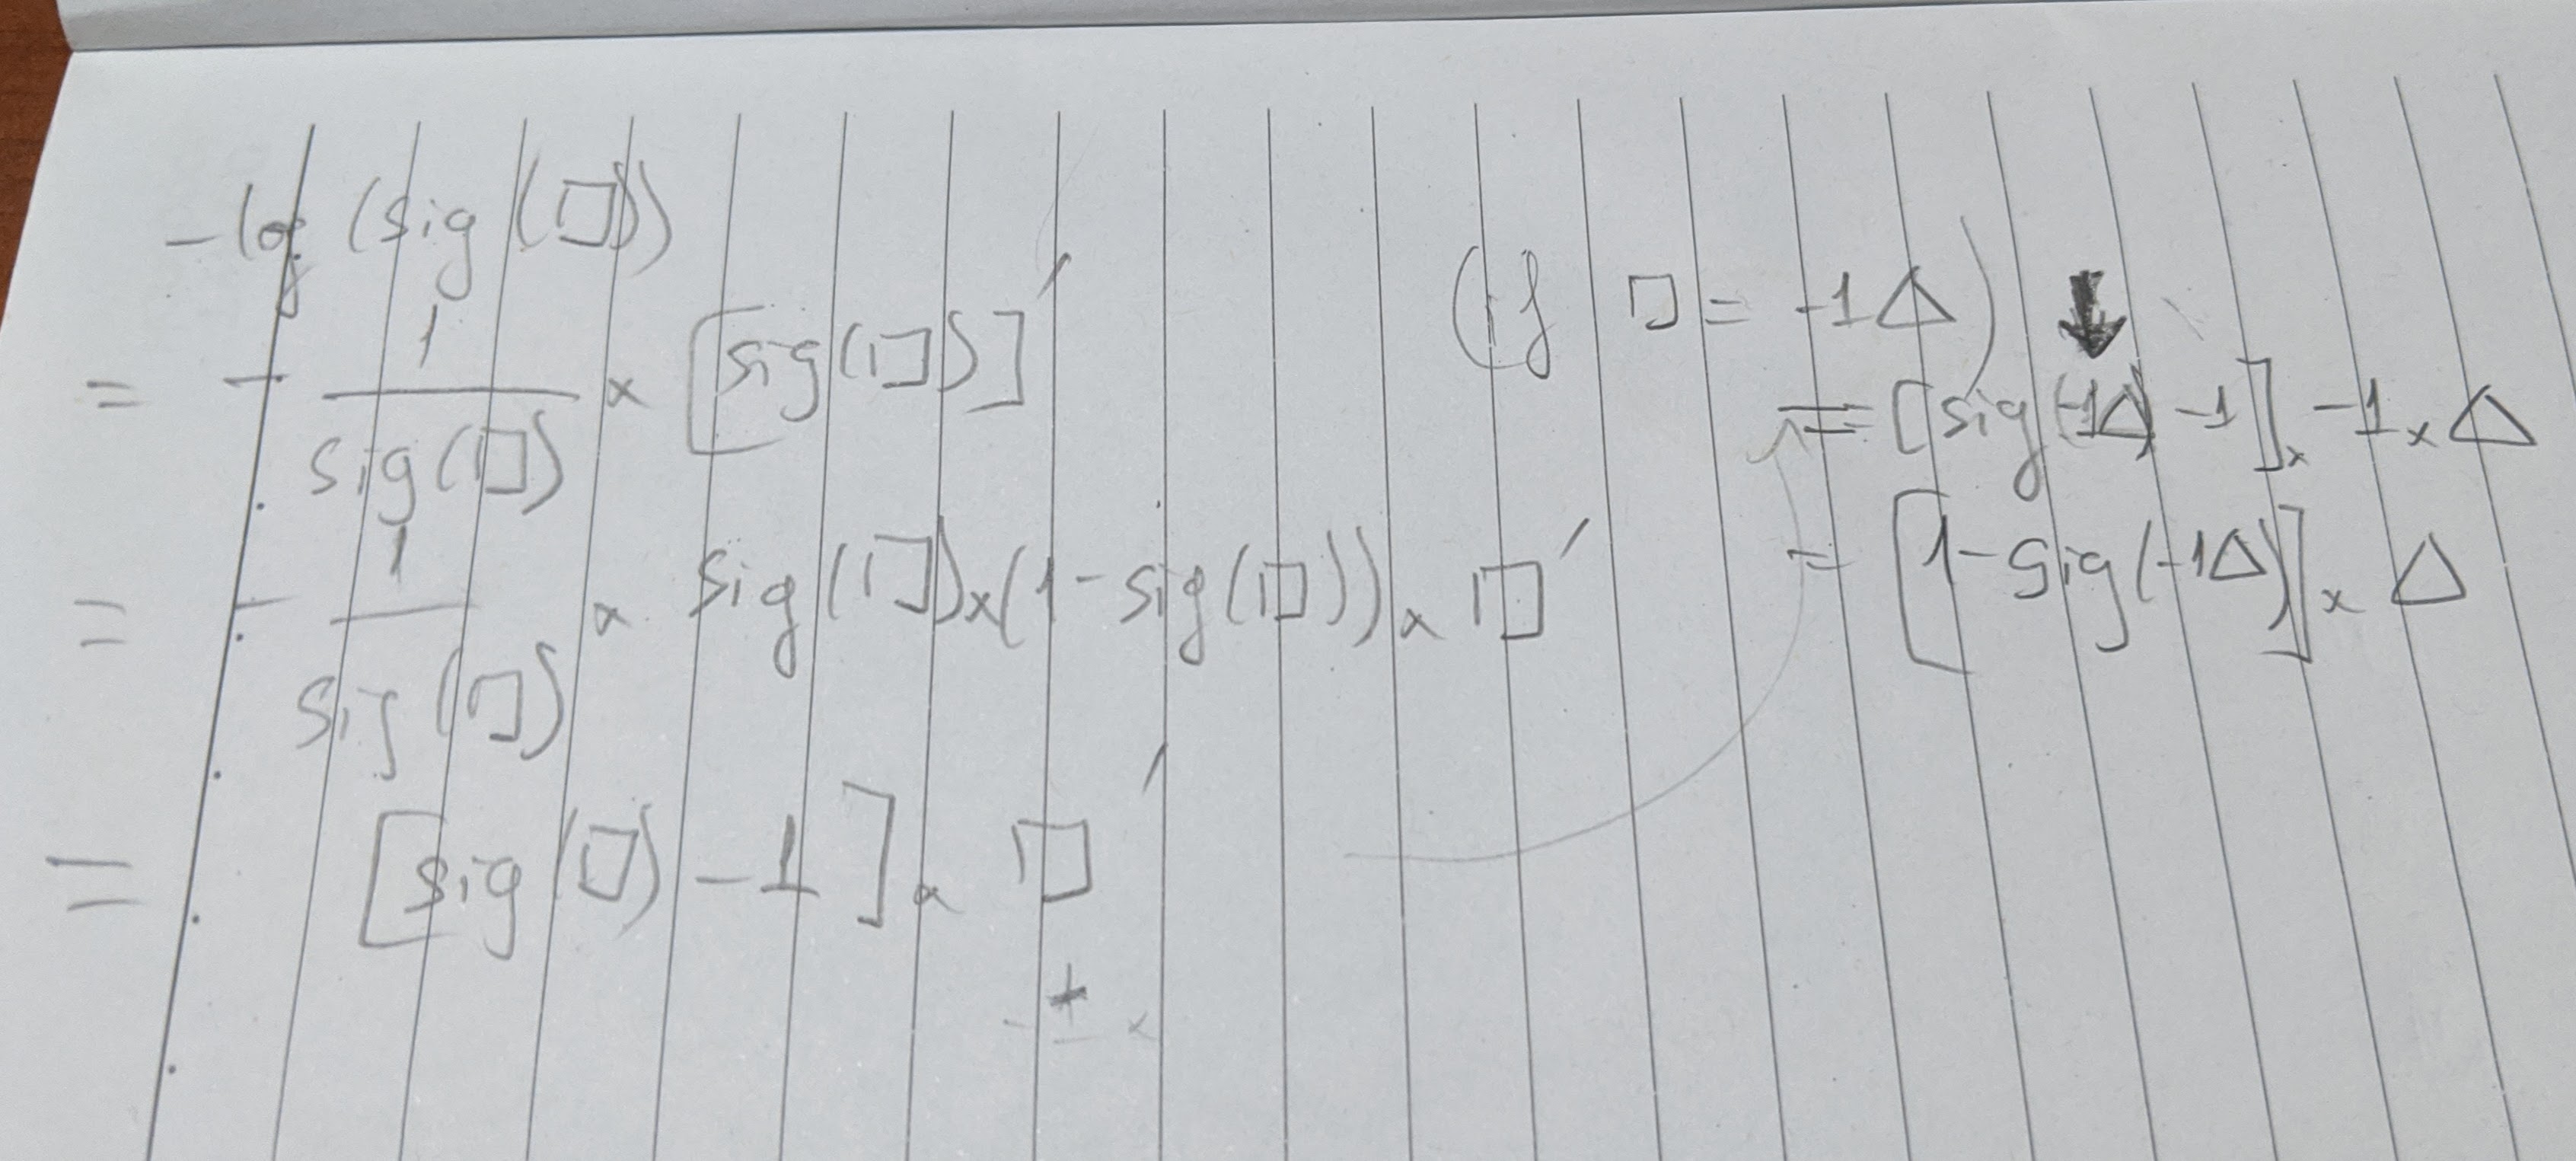 -log (sig (□))
= - 1/sig(□) × [sig(□)]′
= - 1/sig(□) × sig(□)×(1-sig(□)) × □′
= [sig(□) -1] × □′
(if □ = -1△)
= [sig(-1△) -1] × -1 × △
= [1-sig(-1△)] × △